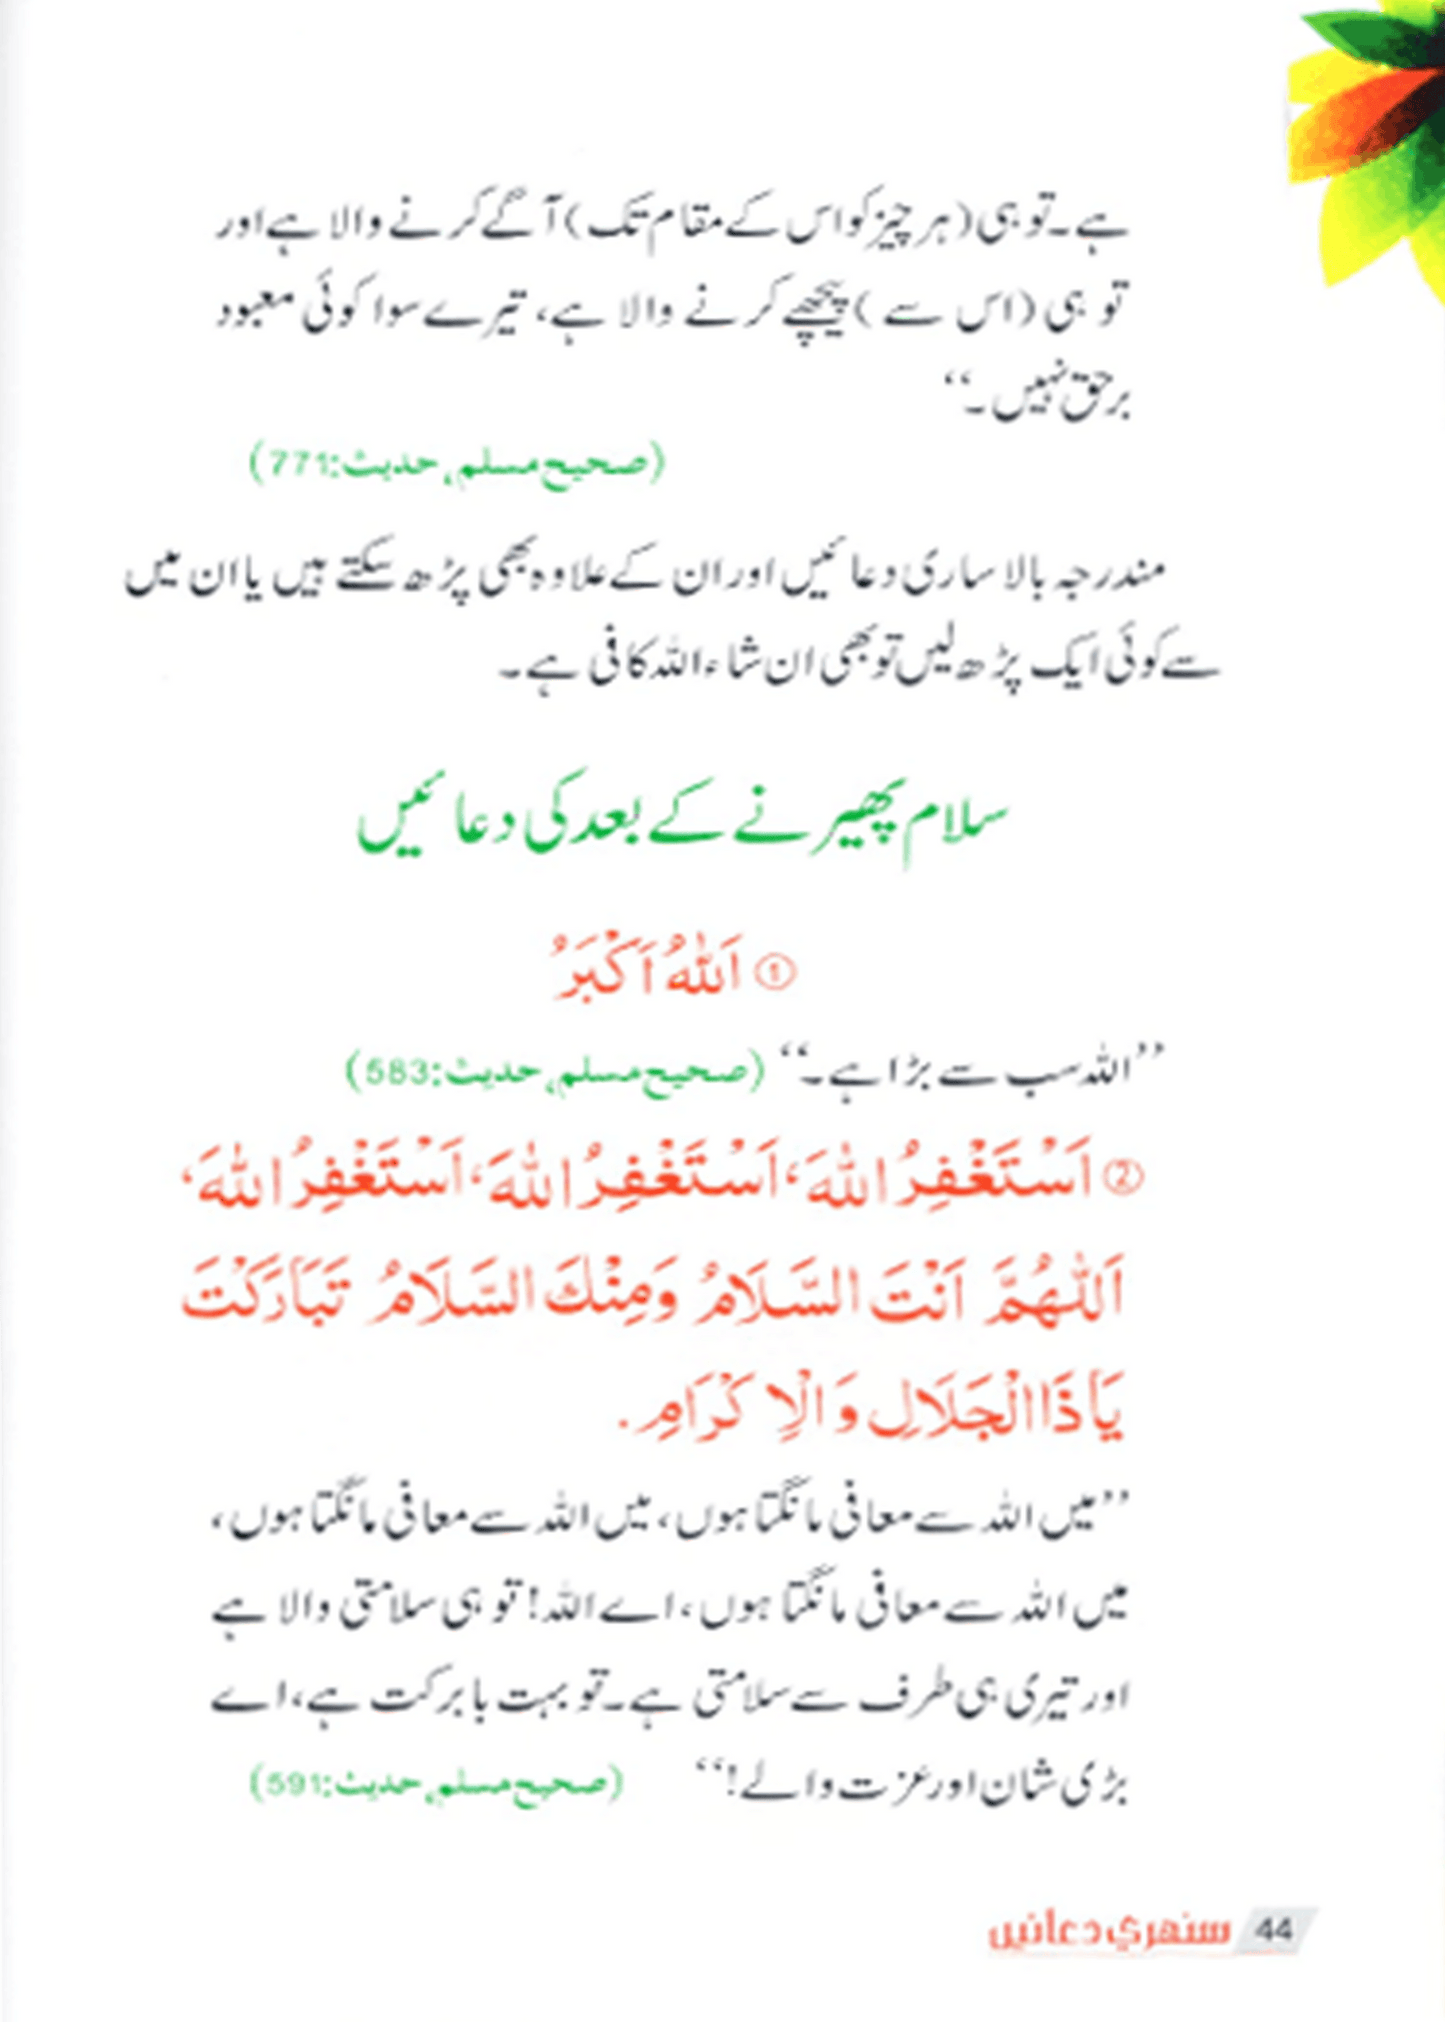 ہے۔ تو ہی (ہر چیز کو اس کے مقام تک) آگے کرنے والا ہے اور
تو ہی (اس سے) پیچھے کرنے والا ہے، تیرے سوا کوئی معبود
برحق نہیں۔‘‘
(صحیح مسلم، حدیث:771)
مندرجہ بالا ساری دعائیں اور ان کے علاوہ بھی پڑھ سکتے ہیں یا ان میں
سے کوئی ایک پڑھ لیں تو بھی ان شاء اللہ کافی ہے۔
سلام پھیرنے کے بعد کی دعائیں
① اَللّٰهُ اَكْبَرُ
’’اللہ سب سے بڑا ہے۔‘‘ (صحیح مسلم، حدیث:583)
② اَسْتَغْفِرُ اللّٰهَ، اَسْتَغْفِرُ اللّٰهَ، اَسْتَغْفِرُ اللّٰهَ،
اَللّٰهُمَّ اَنْتَ السَّلَامُ وَمِنْكَ السَّلَامُ تَبَارَكْتَ
يَا ذَا الْجَلَالِ وَالْاِكْرَامِ.
’’میں اللہ سے معافی مانگتا ہوں، میں اللہ سے معافی مانگتا ہوں،
میں اللہ سے معافی مانگتا ہوں، اے اللہ! تو ہی سلامتی والا ہے
اور تیری ہی طرف سے سلامتی ہے۔ تو بہت بابرکت ہے، اے
بڑی شان اور عزت والے!‘‘ (صحیح مسلم، حدیث:591)
44 سنهري دعائیں